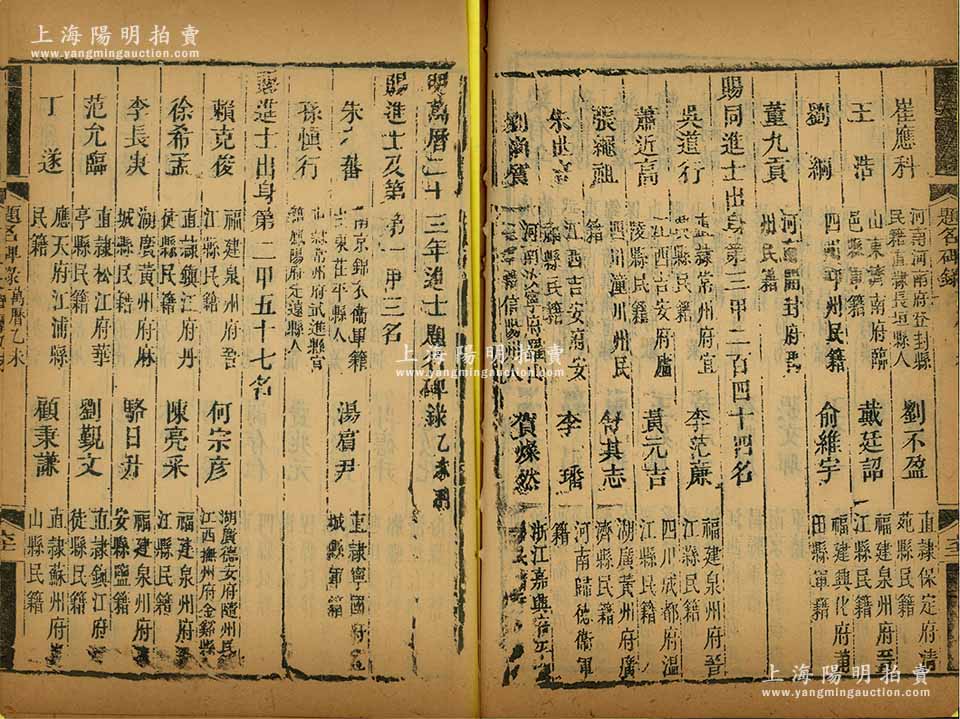 上海陽明拍賣
www.yangmingauction.com
崔應科
河南河南府登封縣
民籍直隸長垣縣人
劉不盈
直隸保定府清
苑縣民籍
王浩
山東濟南府
邑縣軍籍
戴廷詔
福建泉州府晉
江縣民籍
劉綱
四川邛州民籍
俞維宇
福建興化府莆
田縣軍籍
董九貢
河南開封府
州民籍
賜同進士出身第三甲二百四十四名
吳道行
直隸常州府宜
李范廉
福建泉州府晉
江縣民籍
蕭近高
江西吉安府廬
陵縣民籍
黃元吉
四川成都府溫
江縣民籍
張繩祖
四川潼川州民
籍
付其志
湖廣黃州府廣
濟縣民籍
朱世
江西吉安府安
縣民籍
李璠
河南歸德衛軍
籍
劉
河南
籍信陽州
賀燦然
浙江嘉興府平
明萬曆二十三年進士題名碑錄乙未科
賜進士及第第一甲三名
朱之蕃
南京錦衣衛軍籍
山東茌平縣人
湯賓尹
直隸寧國府宣
城縣軍籍
孫慎行
直隸常州府武進縣官
籍鳳陽府定遠縣人
賜進士出身第二甲五十七名
賴克俊
福建泉州府晉
江縣民籍
何宗彥
湖廣德安府隨州民
江西撫州府金谿縣
徐希孟
直隸鎮江府丹
徒縣民籍
陳亮采
福建泉州府晉
江縣民籍
李長庚
湖廣黃州府麻
城縣民籍
駱日升
福建泉州府惠
安縣鹽籍
范允臨
直隸松江府華
亭縣民籍
劉覲文
直隸鎮江府丹
徒縣民籍
丁遂
應天府江浦縣
民籍
顧秉謙
直隸蘇州府崑
山縣民籍
題名碑錄
題名碑錄 萬曆乙未
上海陽明拍賣
www.yangmingauction.com
上海陽明拍賣
www.yangmingauction.com